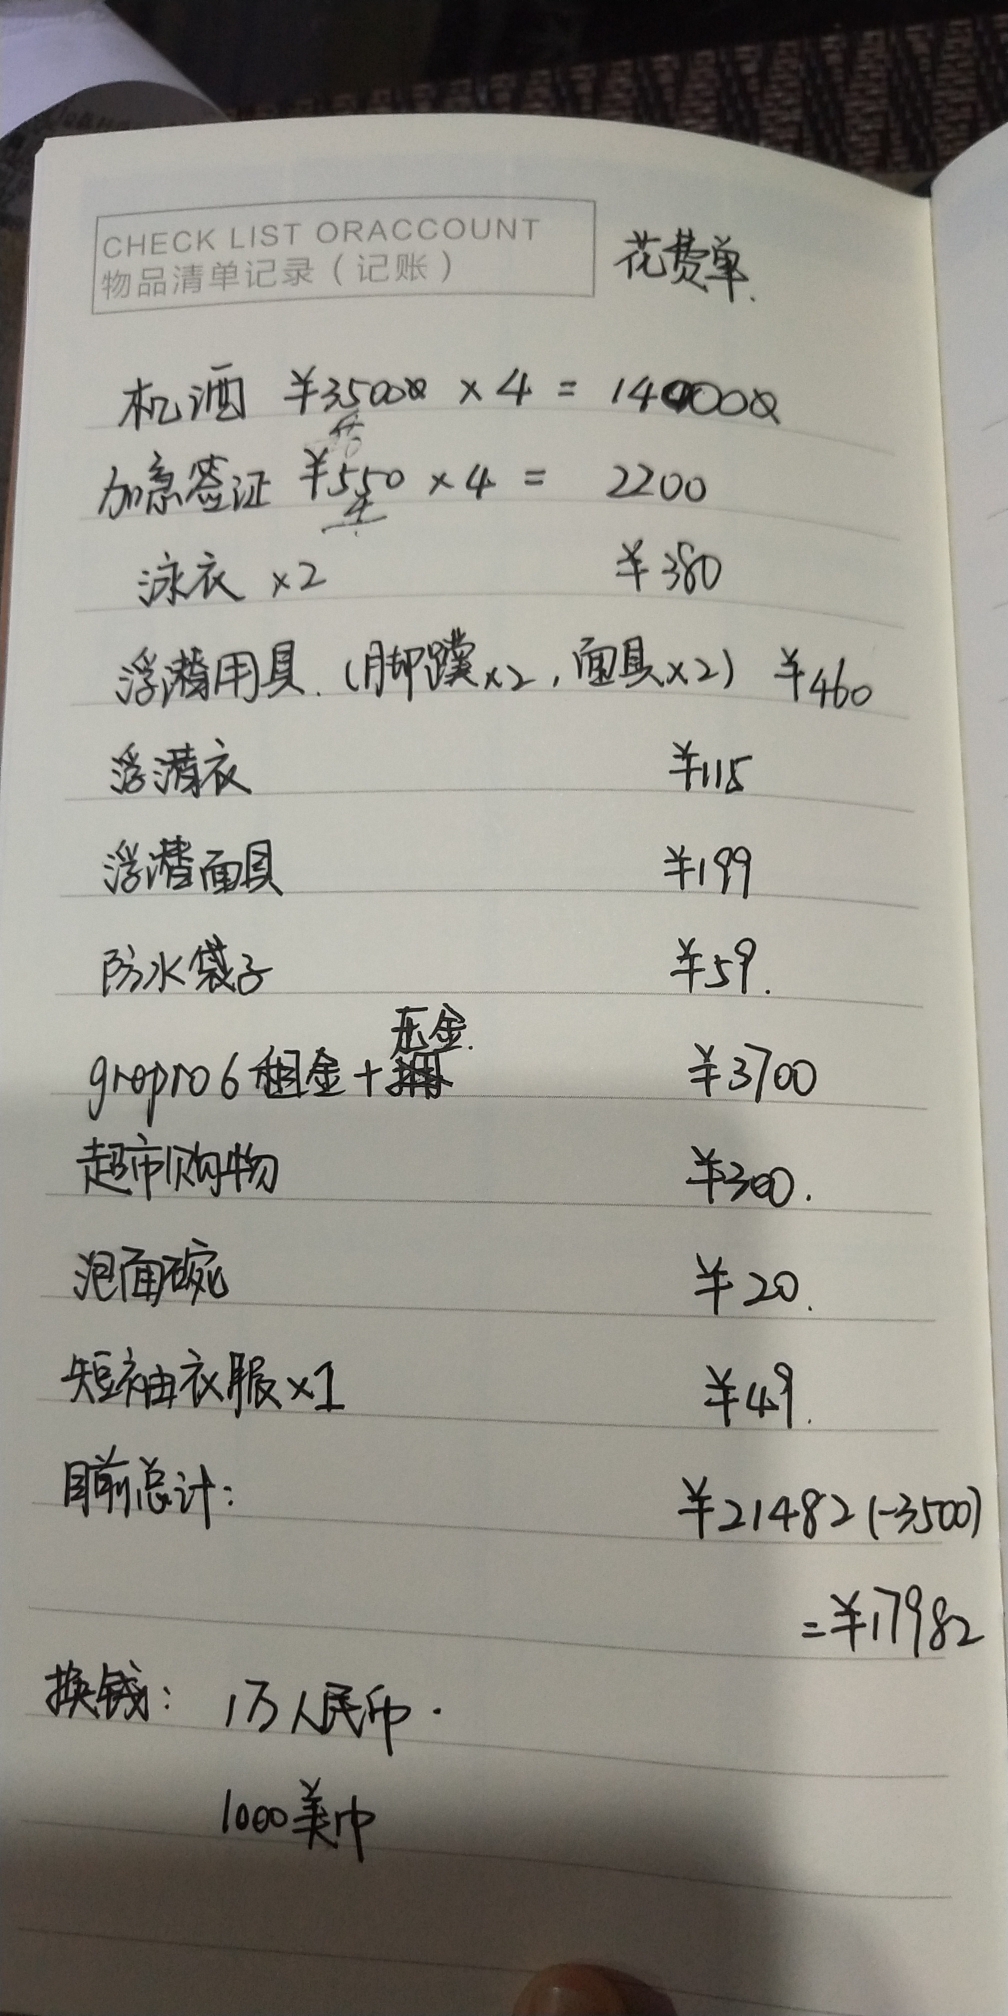 CHECK LIST ORACCOUNT
物品清单记录（记账）
花费单.
机酒 ¥3500 × 4 = 14000
加急签证 ¥550 × 4 = 2200
泳衣 ×2 ¥380
浮潜用具.（脚蹼×2，面具×2） ¥460
浮潜衣 ¥115
浮潜面具 ¥199
防水袋子 ¥59.
gropro6 租金+压金. ¥3700
超市购物 ¥300.
泡面碗 ¥20.
短袖衣服×1 ¥49.
目前总计： ¥21482 (-3500)
=¥17982
换钱： 1万人民币.
1000美巾